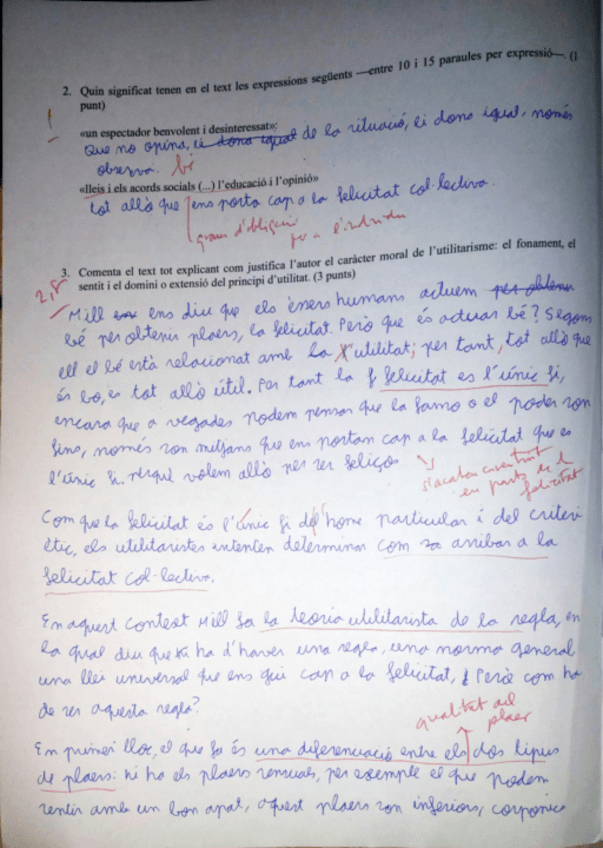 2. Quin significat tenen en el text les expressions següents —entre 10 i 15 paraules per expressió—. (1
punt)
1
«un espectador benvolent i desinteressat»:
Que no opina, li dona igual de la situació, li dona igual, només
observa. bé
«lleis i els acords socials (...) l'educació i l'opinió»
tot allò que ens porta cap a la felicitat col·lectiva.
grau d'obligació
per a l'individu
3. Comenta el text tot explicant com justifica l'autor el caràcter moral de l'utilitarisme: el fonament, el
sentit i el domini o extensió del principi d'utilitat. (3 punts)
2,8
Mill ens diu que els éssers humans actuem per obtenir
bé per obtenir plaers, la felicitat. Però que és actuar bé? Segons
ell el bé està relacionat amb la utilitat; per tant, tot allò que
és bo, es tot allò útil. Per tant la felicitat es l'únic fi,
encara que a vegades podem pensar que la fama o el poder son
fins, només son mitjans que ens portan cap a la felicitat que es
l'únic fi. Perquè volem allò per ser feliços
s'acaben convertint
en parts de la
felicitat
Com que la felicitat és l'únic fi del home particular i del criteri
ètic, els utilitaristes intenten determinar com sa arribar a la
felicitat col·lectiva.
En aquest context Mill fa la teoria utilitarista de la regla, en
la qual diu que ha d'haver una regla, una norma general
una llei universal que ens gui cap a la felicitat, Però com ha
de ser aquesta regla?
qualitat del
plaer
En primer lloc, el que fa és una diferenciació entre els dos tipus
de plaers: hi ha els plaers sensuals, per exemple el que podem
sentir amb un bon apat, aquest plaers son inferiors, corporis